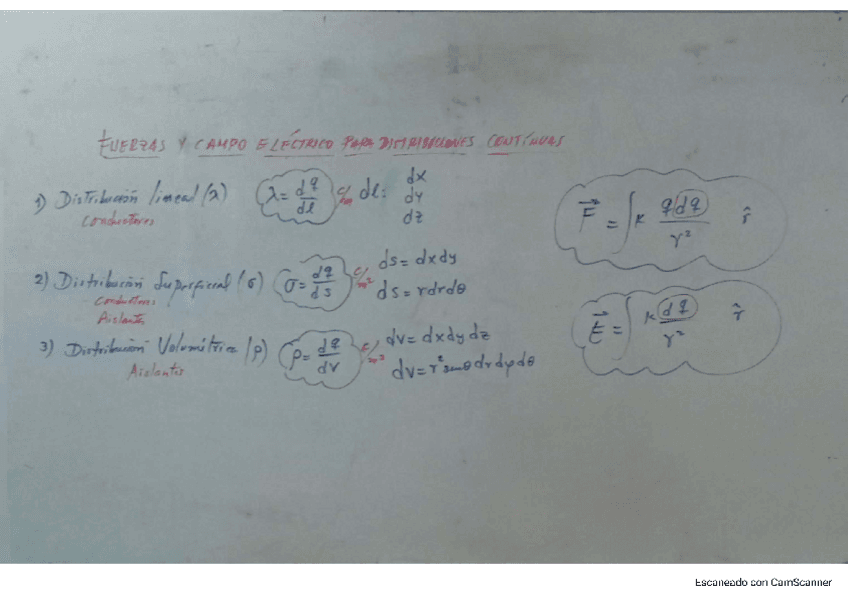 FUERZAS Y CAMPO ELÉCTRICO PARA DISTRIBUCIONES CONTÍNUAS
1) Distribución lineal (λ) λ = dq/dl C/m dl: dx
dy
dz
Conductores
2) Distribución Superficial (σ) σ = dq/ds C/m² ds = dxdy
ds = rdrdθ
Conductores
Aislantes
3) Distribución Volumétrica (ρ) ρ = dq/dv C/m³ dv = dxdydz
dv = r² senθ dr dφ dθ
Aislantes
F⃗ = ∫ k q dq/r² r̂
E⃗ = ∫ k dq/r² r̂
Escaneado con CamScanner